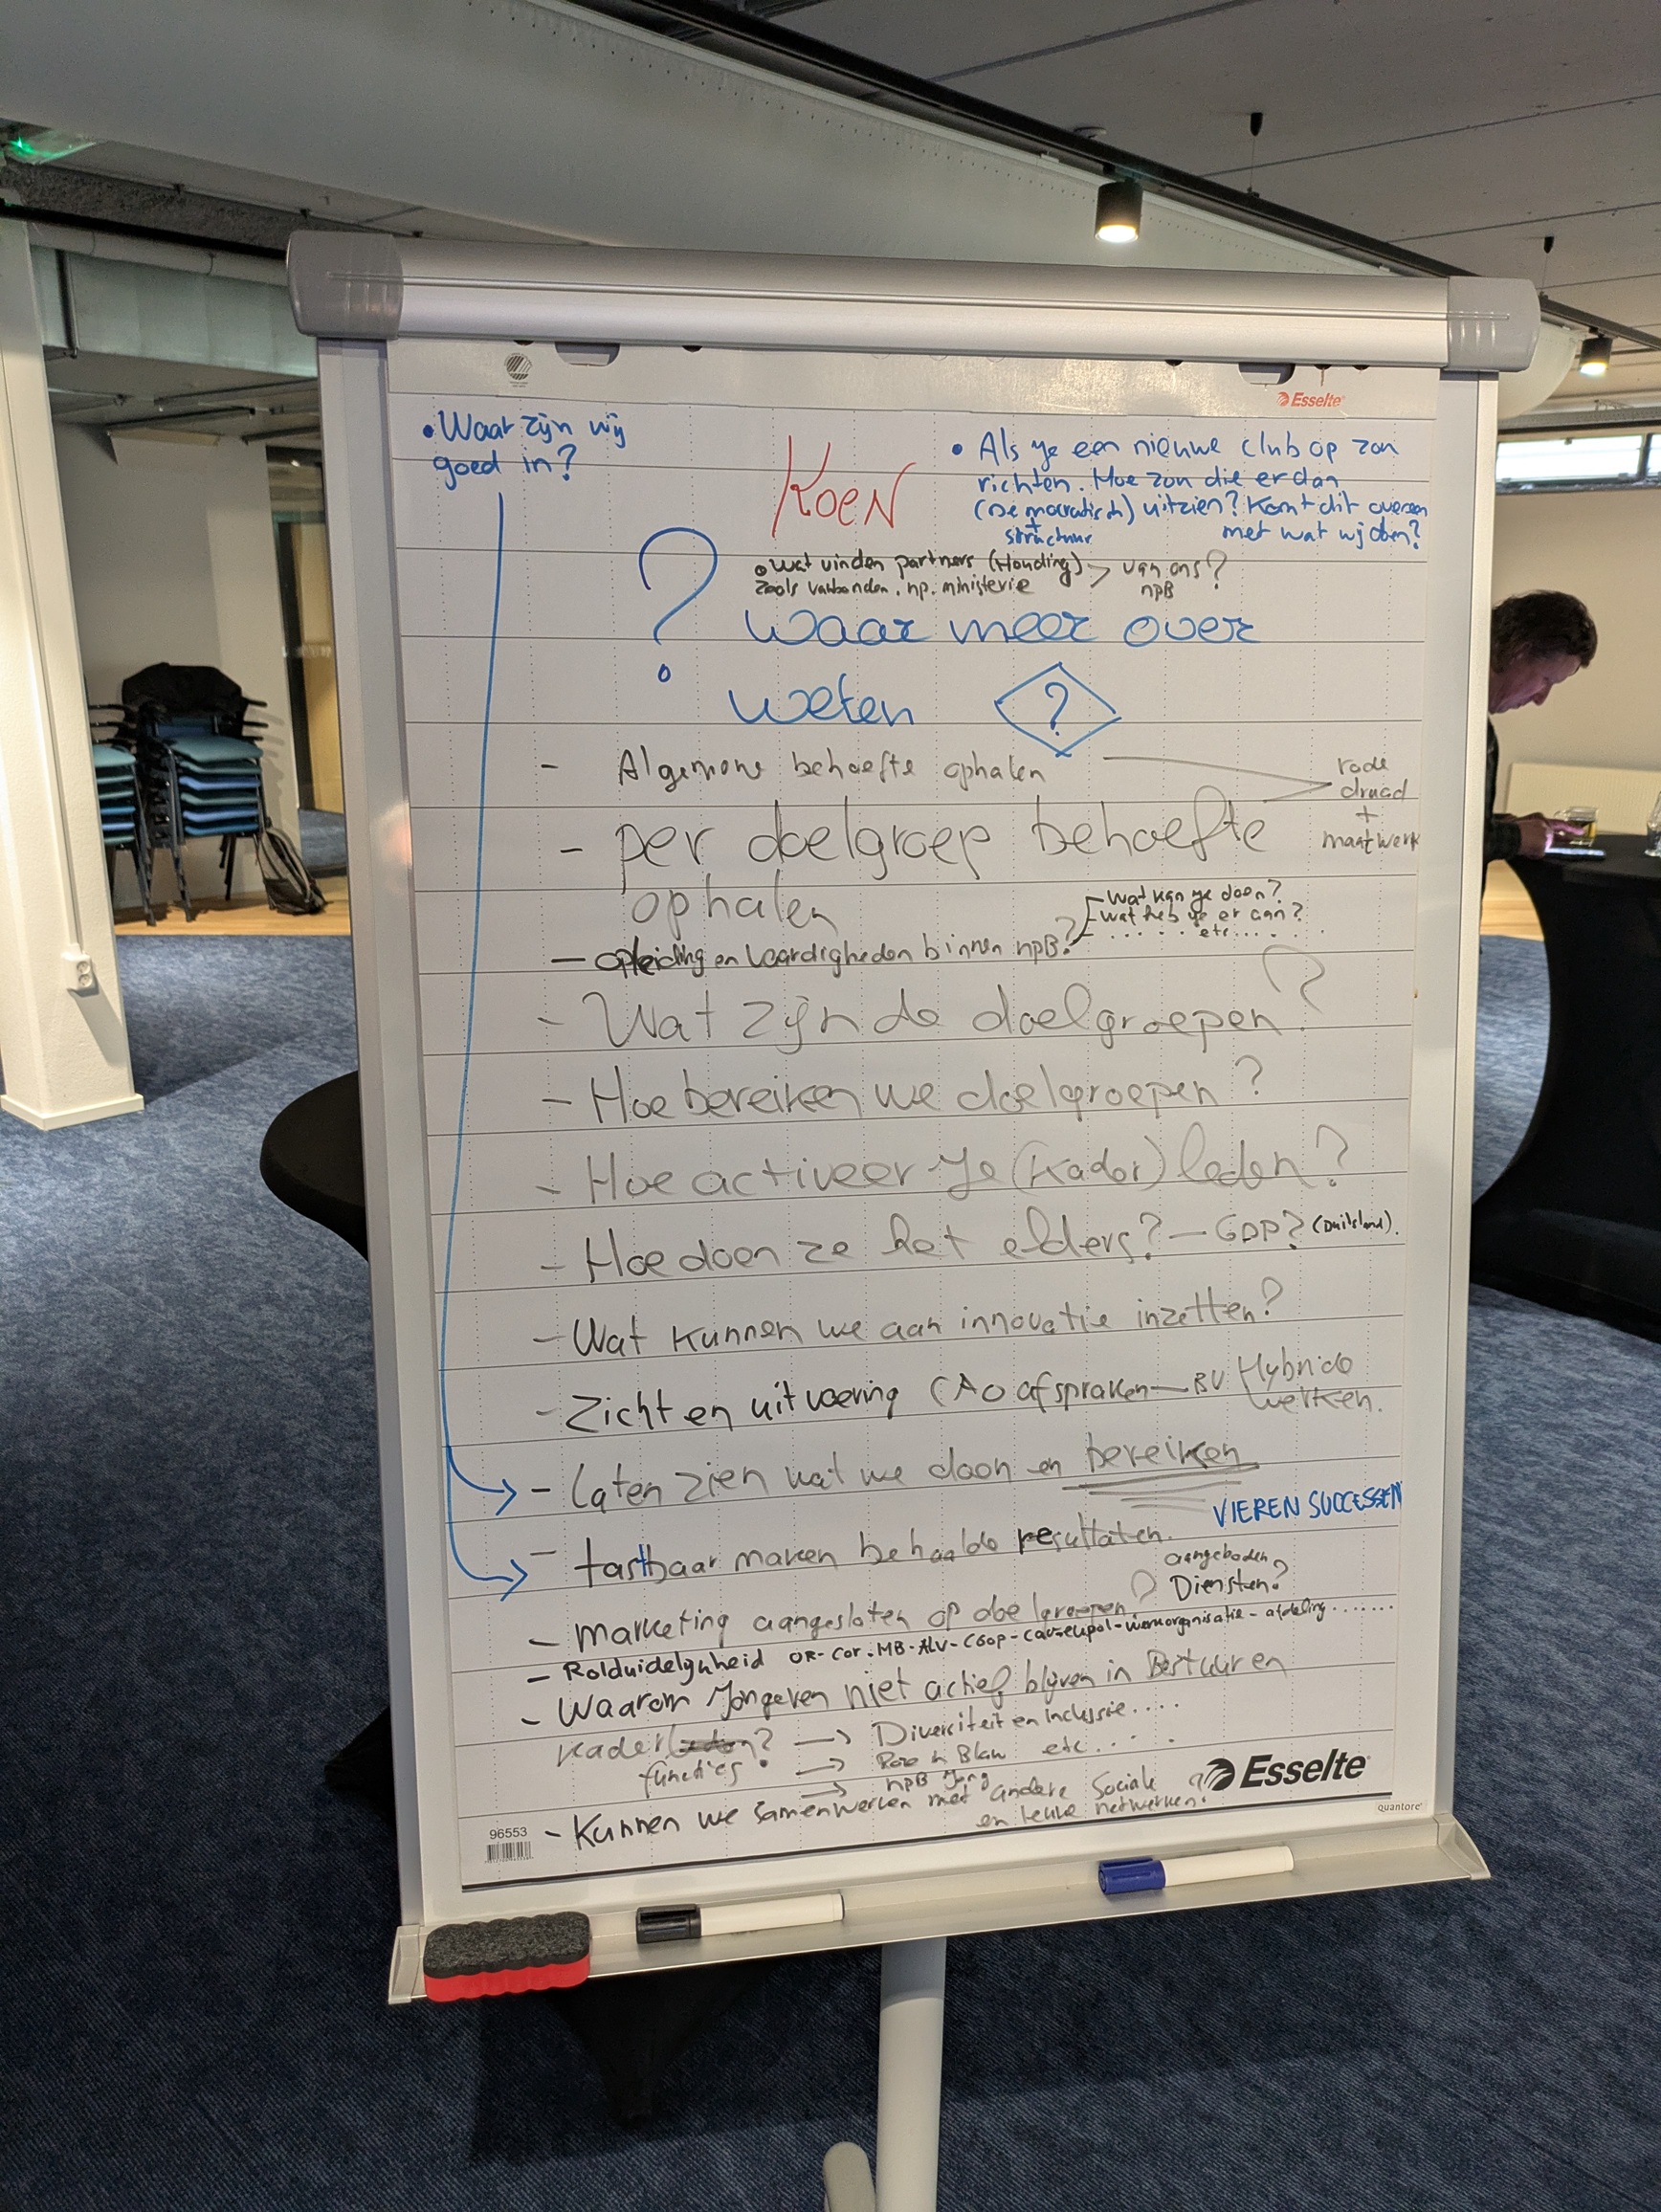 Esselte
• Waar zijn wij
goed in?
KOEN
• Als je een nieuwe club op zou
richten. Hoe zou die er dan
(Democratisch) uitzien? Komt dit overeen
+
structuur
met wat wij doen?
• wat vinden partners (Houding) > van ons?
zoals vakbonden, np, ministerie
npB
?
waar meer over
weten ?
- Algemene behoefte ophalen
rode
draad
+
maatwerk
- per doelgroep behoefte
ophalen
- opleiding en vaardigheden binnen npB?
- wat kan je doen?
- wat heb je er aan?
- ..... etc.....
- Wat zijn de doelgroepen?
- Hoe bereiken we doelgroepen?
- Hoe activeer je (kader) leden?
- Hoe doen ze het elders? — GDP? (Duitsland).
- Wat kunnen we aan innovatie inzetten?
- Zicht en uitvoering CAO afspraken — BV Hybride
werken.
- Laten zien wat we doen en bereiken
VIEREN SUCCESSEN
- tastbaar maken behaalde resultaten.
- Marketing aangesloten op doelgroepen?
aangeboden
Diensten?
- Rolduidelijkheid OR - Cor. MB - ALV - CGOP - Cao-eupol - werkorganisatie - afdeling.......
- Waarom Jongeren niet actief blijven in Bestuur en
kader leden?
functies
→ Diversiteit en Inclusie....
→ Roze in Blauw etc....
→ npB Jong
- Kunnen we samenwerken met andere Sociale
en leuke netwerken?
Esselte
quantore
96553